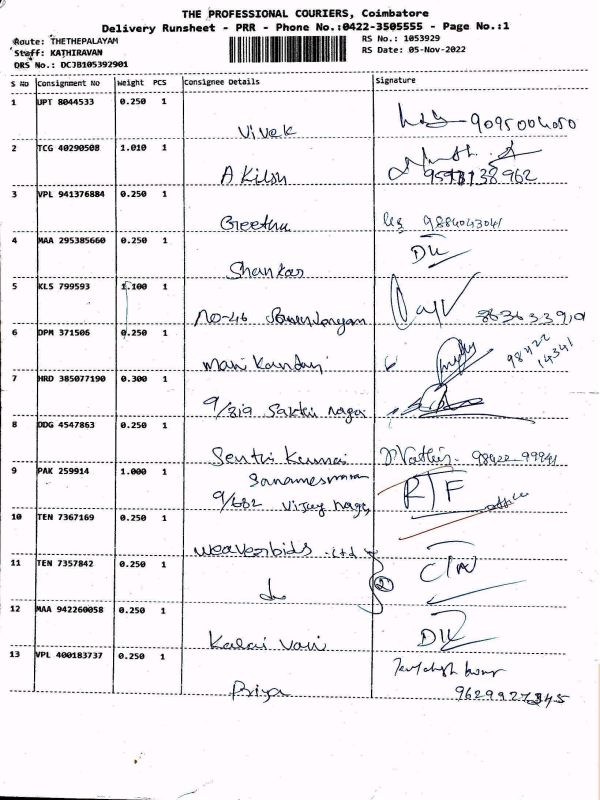 THE PROFESSIONAL COURIERS, Coimbatore
Delivery Runsheet - PRR - Phone No.:0422-3505555 - Page No.:1
Route: THETHEPALAYAM
RS No.: 1053929
Staff: KATHIRAVAN
RS Date: 05-Nov-2022
DRS No.: DCJB105392901
S No Consignment No Weight PCS Consignee Details Signature
1 UPT 8044533 0.250 1
Vivek 9095004050
2 TCG 40290508 1.010 1
A Kilon
3 VPL 941376884 0.250 1
Greetha 9884043041
4 MAA 295385660 0.250 1
Shankar DK
5 KLS 799593 1.100 1
NO-46
6 DPM 371506 0.250 1
Mani 98422 14341
7 HRD 385077190 0.300 1
9/319 Sakthi nagar
8 DDG 4547863 0.250 1
Senthi Kumar 98422-99941
9 PAK 259914 1.000 1
9/682 Vijay nagar RTF office
10 TEN 7367169 0.250 1
Weaverbids Ltd
11 TEN 7357842 0.250 1
2
12 MAA 942260058 0.250 1
Kalai Vani DK
13 VPL 400183737 0.250 1
Priya 9629927345